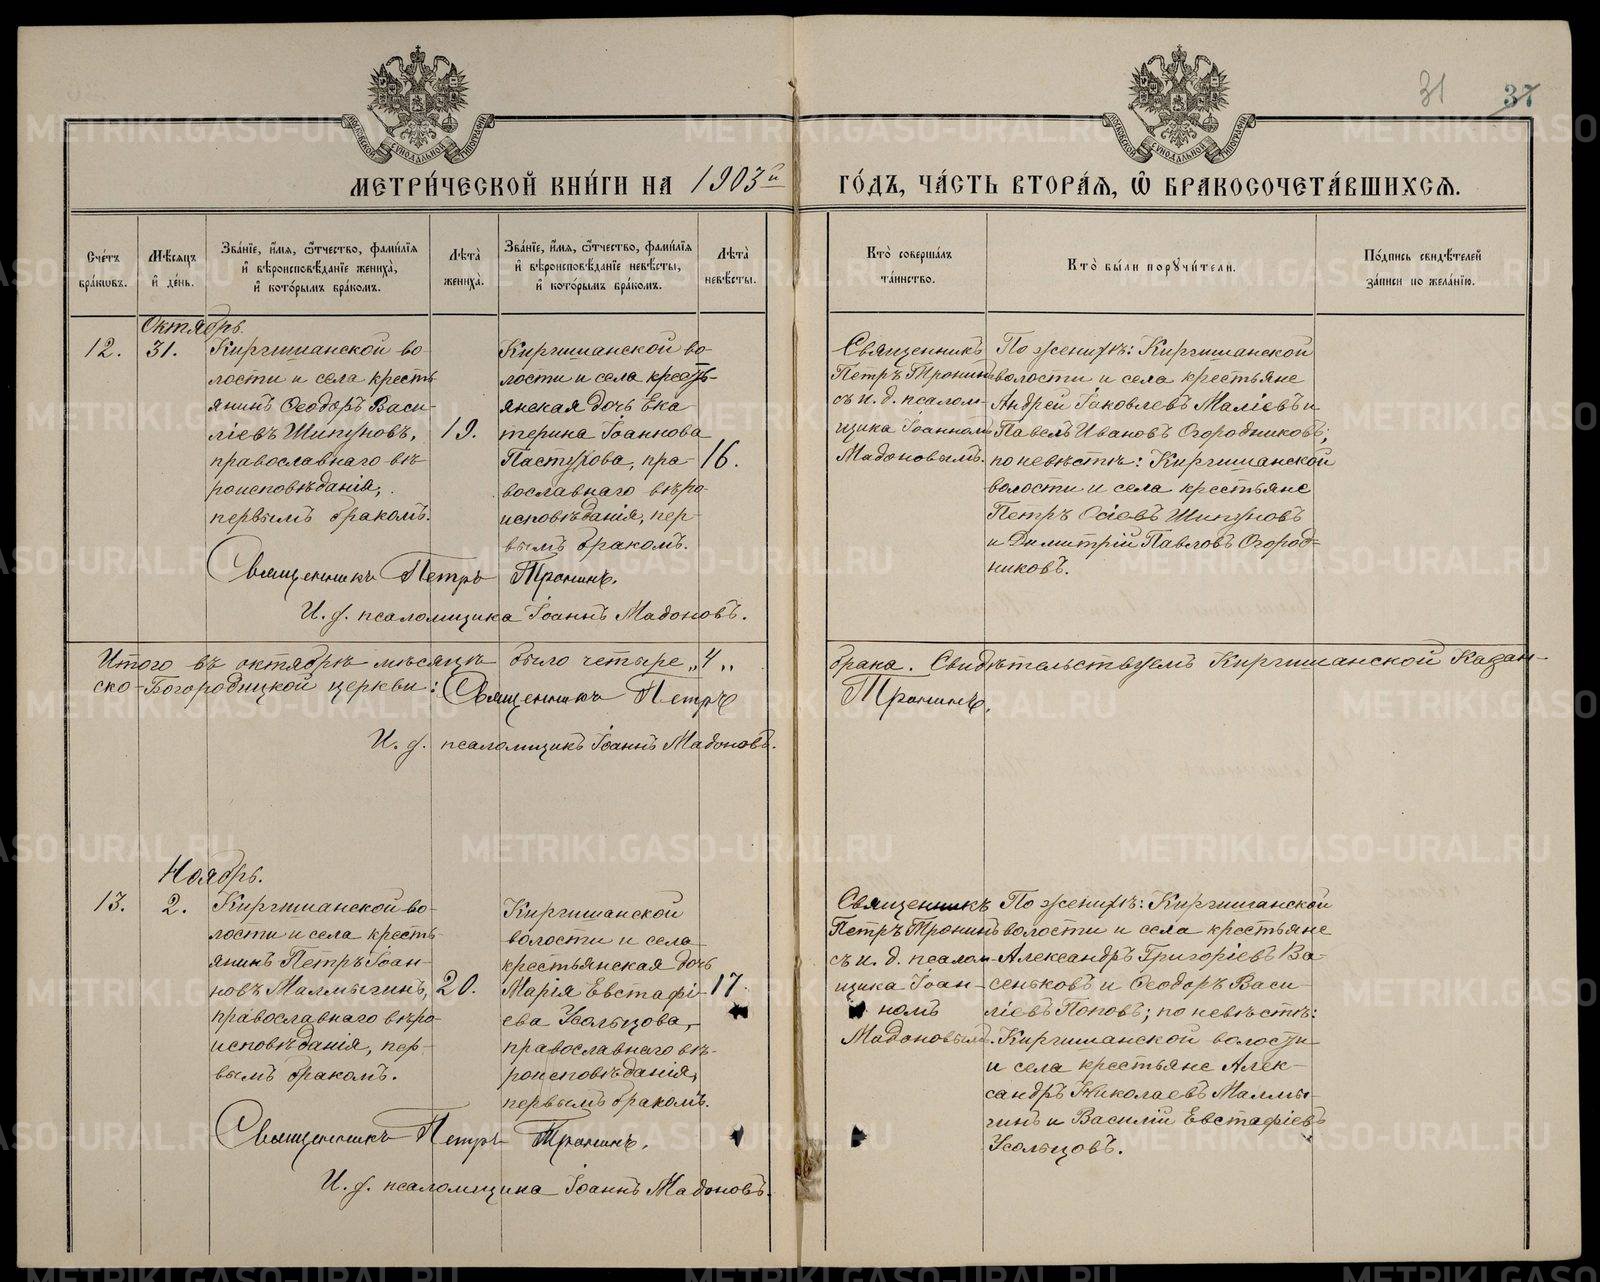 31 37
МОСКОВСКОЙ СУНОДАЛЬНОЙ ТИПОГРАФІИ
МОСКОВСКОЙ СУНОДАЛЬНОЙ ТИПОГРАФІИ
МЕТРИ́ЧЕСКОЙ КНИ́ГИ НА 1903й ГО́ДЪ, ЧА́СТЬ ВТОРА́Я, Ѡ҆ БРАКОСОЧЕТА́ВШИХСЯ.
Сче́тъ
бра́кѡвъ.
Мѣ́сяцъ
и҆ де́нь.
Зва́нїе, и҆́мя, ѻ҆́тчество, фами́лїя
и҆ вѣроисповѣ́данїе жениха̀,
и҆ кото́рымъ бра́комъ.
Лѣта̀
жениха̀.
Зва́нїе, и҆́мя, ѻ҆́тчество, фами́лїя
и҆ вѣроисповѣ́данїе невѣ́сты,
и҆ кото́рымъ бра́комъ.
Лѣта̀
невѣ́сты.
Кто̀ соверша́лъ
та́инство.
Кто̀ бы́ли порꙋчи́тели.
По́дпись свидѣ́телей
за́писи по жела́нїю.
Октябрь.
12.
31.
Киргишанской во-
лости и села кресть
янинъ Ѳеодоръ Васи-
ліевъ Шипуновъ,
православнаго вѣ
роисповѣданія,
первымъ бракомъ.
19.
Киргишанской во-
лости и села кресть-
янская дочь Ека
терина Іоаннова
Пастухова, пра-
вославнаго вѣро-
исповѣданія, пер-
вымъ бракомъ.
16.
Священникъ
Петръ Тронинъ
съ и. д. псалом-
щика Іоанномъ
Мадоновымъ.
По женихѣ: Киргишанской
волости и села крестьяне
Андрей Іаковлевъ Маліевъ и
Павелъ Ивановъ Огородниковъ;
по невѣстѣ: Киргишанской
волости и села крестьяне
Петръ Осіевъ Шипуновъ
и Димитрій Павловъ Огород-
никовъ.
Священникъ Петръ Тронинъ.
И. д. псаломщика Іоаннъ Мадоновъ.
Итого въ октябрѣ мѣсяцѣ было четыре „4„ брака. Свидѣтельствуемъ Киргишанской Казан-
ско-Богородицкой церкви: Священникъ Петръ Тронинъ.
И. д. псаломщикъ Іоаннъ Мадоновъ.
Ноябрь.
13.
2.
Киргишанской во-
лости и села кресть-
янинъ Петръ Іоан-
новъ Малмыгинъ,
православнаго вѣро
исповѣданія, пер-
вымъ бракомъ.
20.
Киргишанской
волости и села
крестьянская дочь
Марія Евстафі-
ева Усольцова,
православнаго вѣ-
роисповѣданія,
первымъ бракомъ.
17.
Священникъ
Петръ Тронинъ
съ и. д. псалом-
щика Іоан-
номъ
Мадоновымъ.
По женихѣ: Киргишанской
волости и села крестьяне
Александръ Григоріевъ Ва-
сеньковъ и Ѳеодоръ Васи-
ліевъ Поповъ; по невѣстѣ:
Киргишанской волости
и села крестьяне Алек-
сандръ Николаевъ Малмы-
гинъ и Василій Евстафіевъ
Усольцовъ.
Священникъ Петръ Тронинъ.
И. д. псаломщика Іоаннъ Мадоновъ.
METRIKI.GASO-URAL.RU